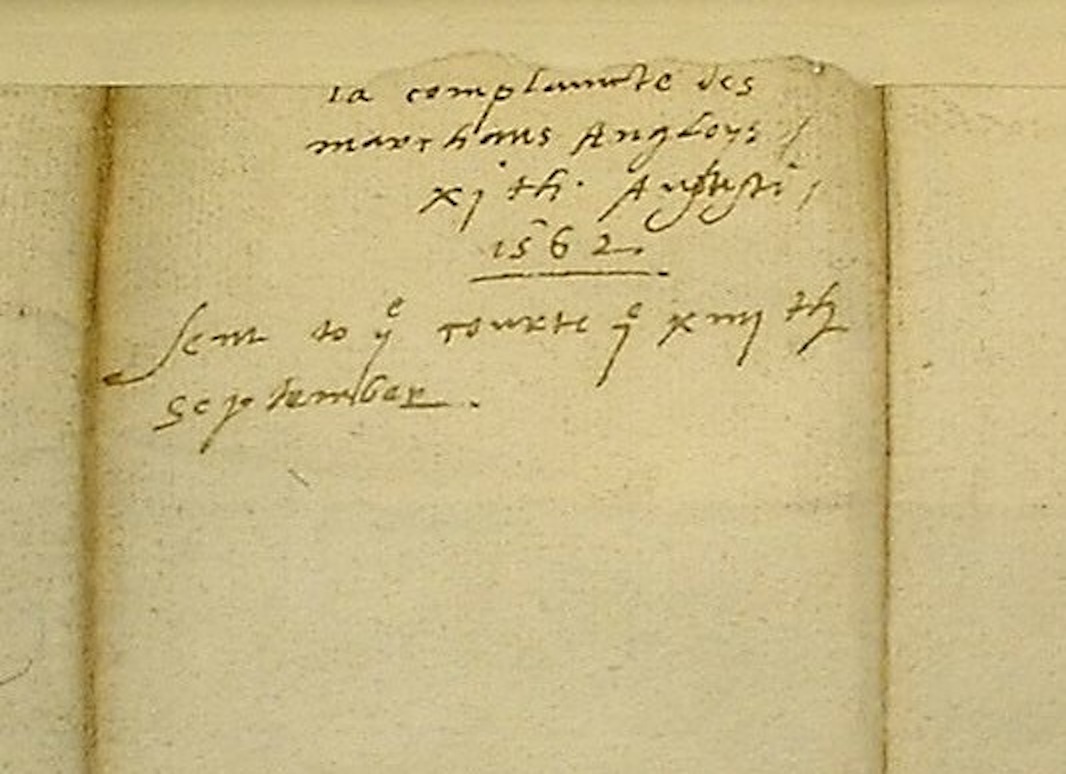 la complaincte des
marchans Angloys /
xj th. Augusti /
1562.
sent to ye courte ye xiiij th
September.